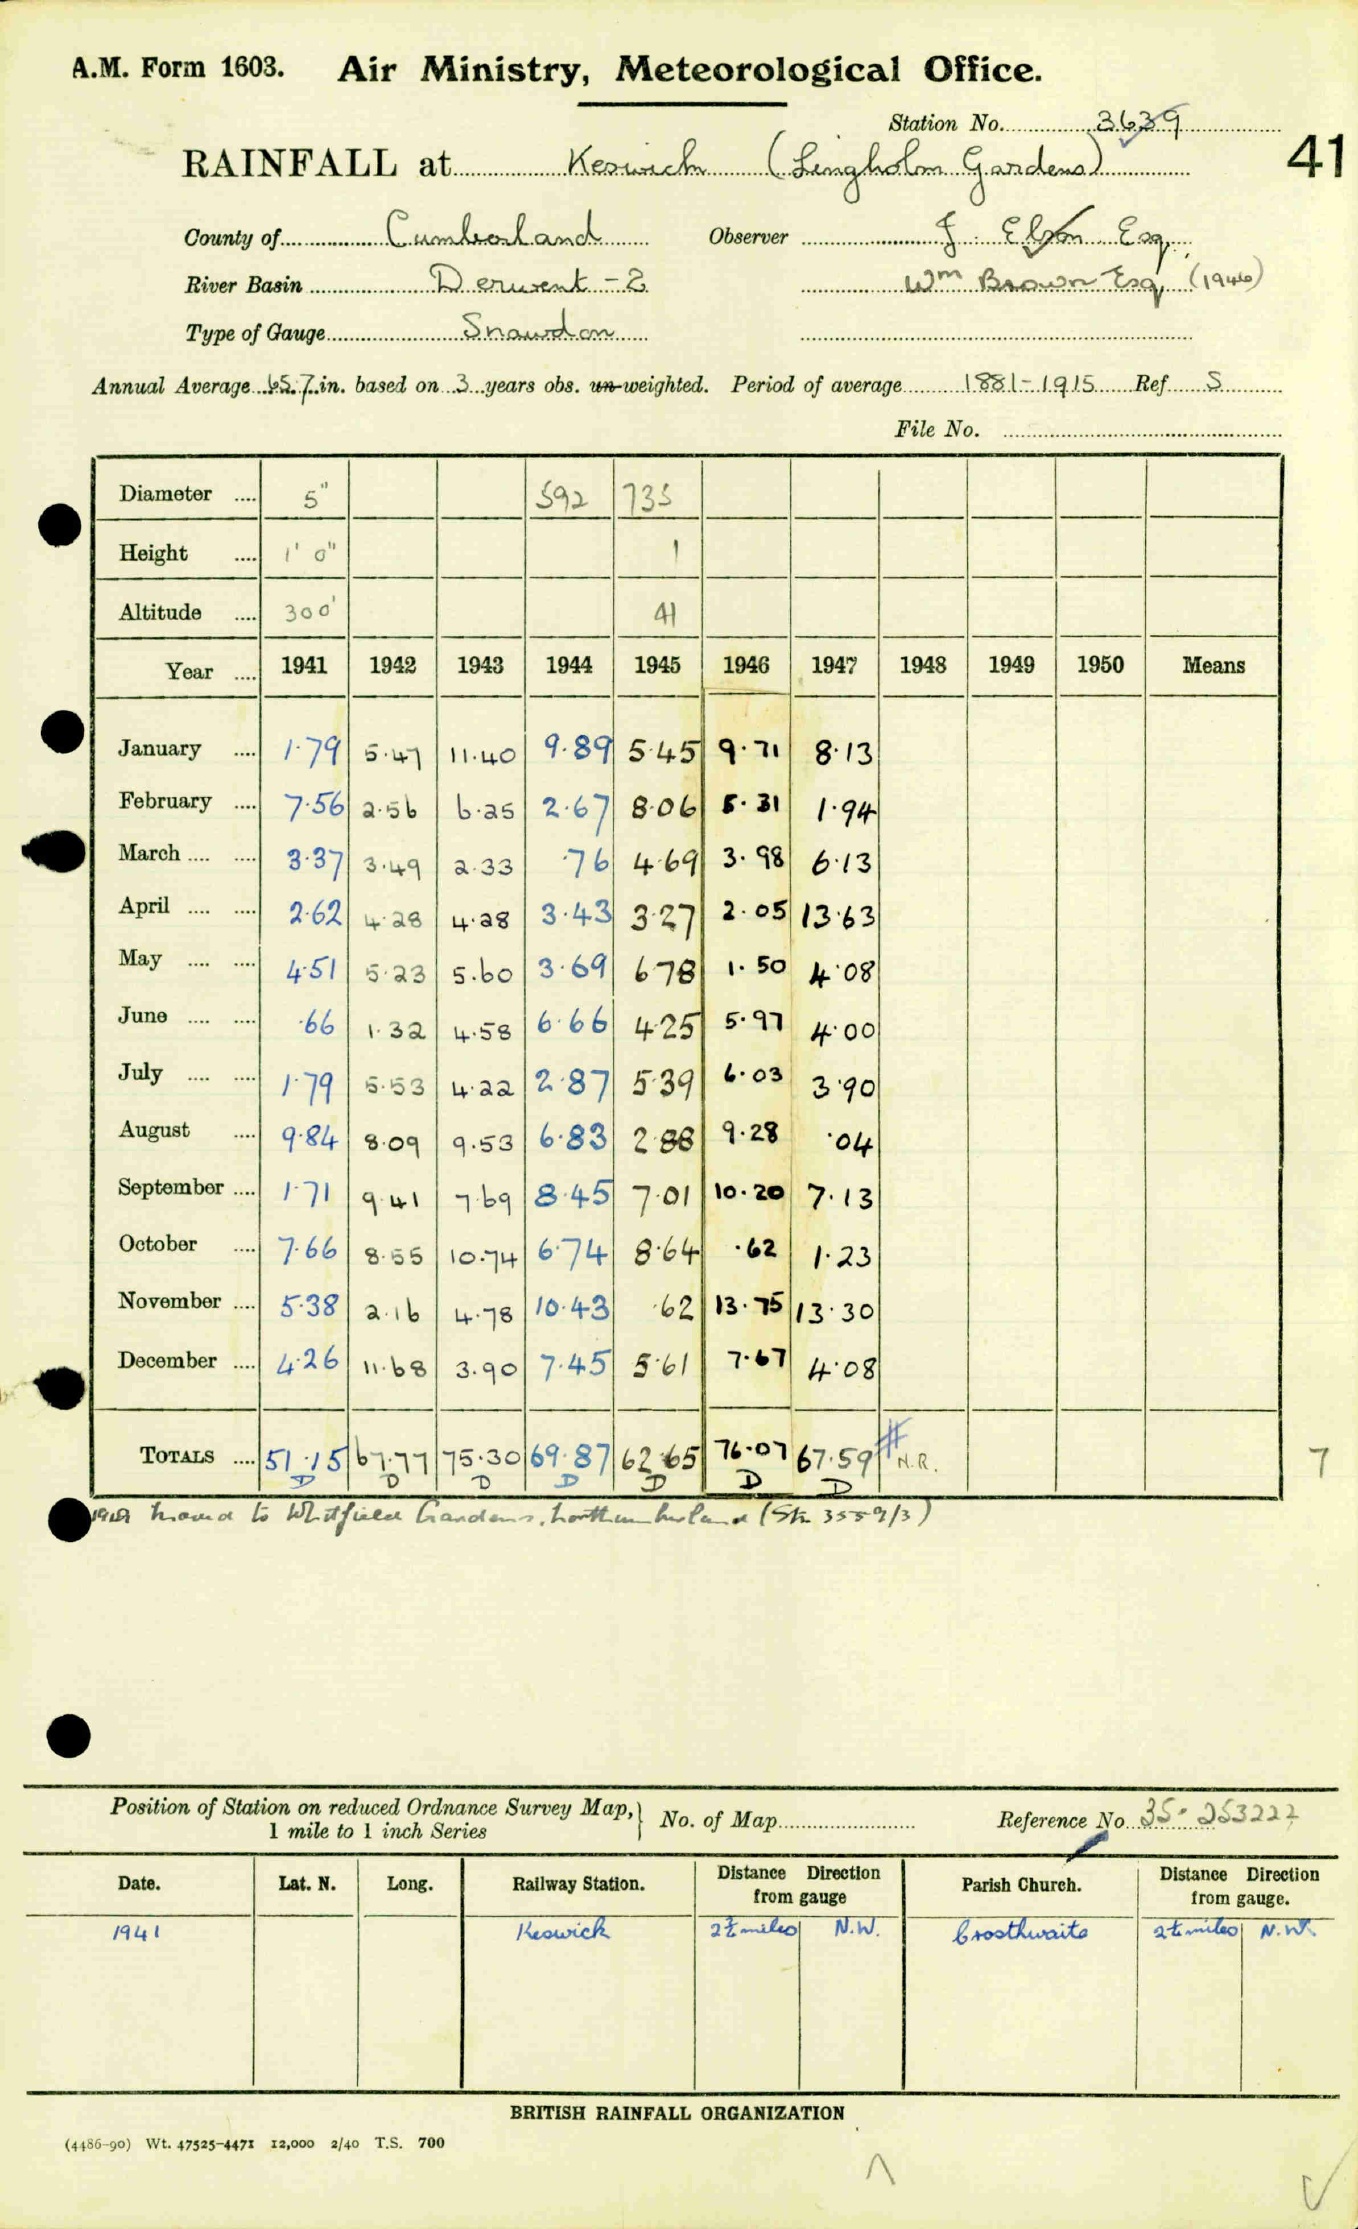 A.M. Form 1603. Air Ministry, Meteorological Office.
Station No. 3639
41
RAINFALL at Keswick (Lingholm Gardens)
County of Cumberland Observer J. Elson Esq.
River Basin Derwent - 2 Wm Brown Esq (1946)
Type of Gauge Snowdon
Annual Average 65.7 in. based on 3 years obs. un-weighted. Period of average 1881-1915 Ref S
File No.
Diameter .... 5" 592 735
Height .... 1' 0" 1
Altitude .... 300' 41
Year .... 1941 1942 1943 1944 1945 1946 1947 1948 1949 1950 Means
January .... 1.79 5.47 11.40 9.89 5.45 9.71 8.13
February .... 7.56 2.56 6.25 2.67 8.06 5.31 1.94
March .... .... 3.37 3.49 2.33 .76 4.69 3.98 6.13
April .... .... 2.62 4.28 4.28 3.43 3.27 2.05 13.63
May .... .... 4.51 5.23 5.60 3.69 6.78 1.50 4.08
June .... .... .66 1.32 4.58 6.66 4.25 5.97 4.00
July .... .... 1.79 5.53 4.22 2.87 5.39 6.03 3.90
August .... 9.84 8.09 9.53 6.83 2.88 9.28 .04
September .... 1.71 9.41 7.69 8.45 7.01 10.20 7.13
October .... 7.66 8.55 10.74 6.74 8.64 .62 1.23
November .... 5.38 2.16 4.78 10.43 .62 13.75 13.30
December .... 4.26 11.68 3.90 7.45 5.61 7.67 4.08
TOTALS .... 51.15 67.77 75.30 69.87 62.65 76.07 67.59 # N.R. 7
D D D D D D D
moved to Whitfield Gardens, Northumberland (Stn 3559/3)
Position of Station on reduced Ordnance Survey Map, } No. of Map Reference No. 35. 253222
1 mile to 1 inch Series
Date. Lat. N. Long. Railway Station. Distance Direction from gauge Parish Church. Distance Direction from gauge.
1941 Keswick 2½ miles N.W. Crosthwaite 2½ miles N.W.
BRITISH RAINFALL ORGANIZATION
(4486-90) Wt. 47525-4471 12,000 2/40 T.S. 700